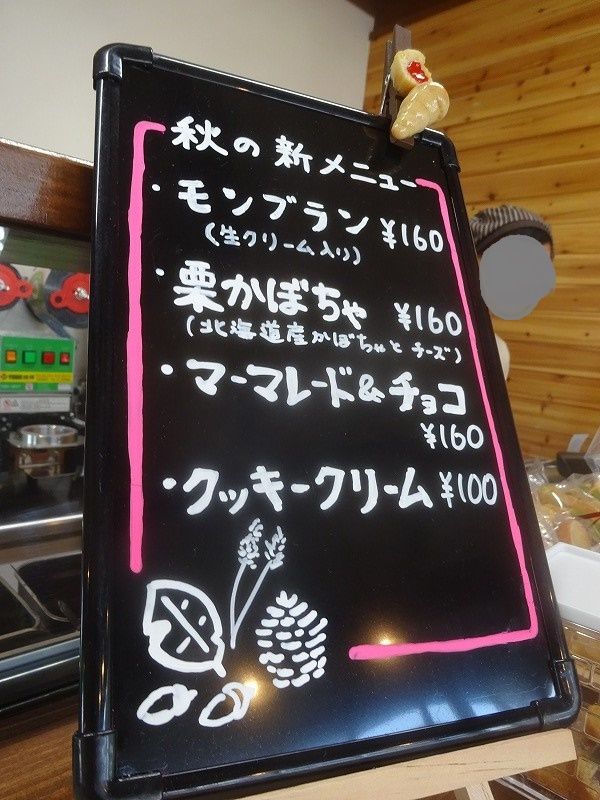 秋の新メニュー
・モンブラン ¥160
(生クリーム入り)
・栗かぼちゃ ¥160
(北海道産かぼちゃとチーズ)
・マーマレード&チョコ
¥160
・クッキークリーム ¥100